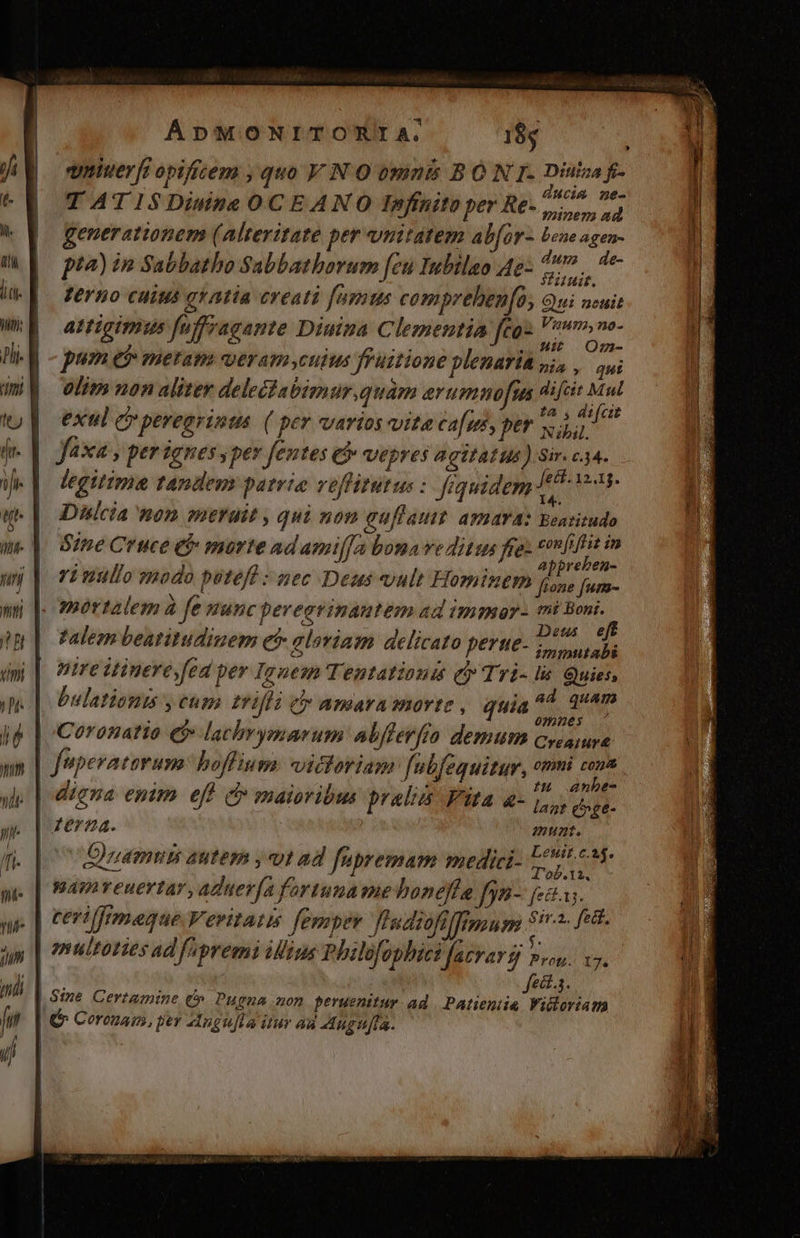 ADMONITORIA. 185
vniuersi opificem, quo VNO omnis BONI-
TATIS Diuinæ OCEANO Infinito per Re-
generationem (alteritate per vnitatem absor-
pta) in Sabbatho Sabbathorum seu Iubilæo Æ-
terno cuius gratia creati sumus comprehenso,
attigimus suffragante Diuina Clementia sco-
pum & metam veram, cuius fruitione plenariâ
olim non aliter delectabimur, quàm ærumnosus
exul & peregrinus (per varios vitæ casus, per
saxa, per ignes, per sentes & vepres agitatus)
legitimæ tandem patriæ restitutus: siquidem
Dulcia non meruit, qui non gustauit amara:
Sine Cruce & morte ad amissa bona reditus fie-
ri nullo modo potest: nec Deus vult Hominem
mortalem à se nunc peregrinantem ad immor-
talem beatitudinem & gloriam delicato perue-
nire itinere, sed per Ignem Tentationis & Tri-
bulationis, cum tristi & amara morte, quia
Coronatio & lachrymarum abstersio demum
superatorum hostium victoriam subsequitur,
digna enim est & maioribus præliis Vita æ-
terna.
Quamuis autem, vt ad supremam medici-
nam reuertar, aduersa fortuna me honestæ syn-
cerissimæque Veritatis semper studiosissimum
multoties ad supremi illius Philosophici sacrarij
Diuina fi-
ducia ne-
minem ad
bene agen-
dum de-
stituit.
Qui nouit
Vnum, no-
uit Om-
nia, qui
discit Mul
ta, discit
Nihil.
Sir. c.34.
sect. 12.13.
14.
Beatitudo
consistit in
apprehen-
sione sum-
mi Boni.
Deus est
immutabi
lis Quies,
ad quam
omnes
Creaturæ
omni cona
tu anhe-
lant & ge-
munt.
Leuit. c. 25.
Tob. 12.
sect. 13.
Sir. 2. sect.
5.
Prou. 17.
sect. 3.
Sine Certamine & Pugna non peruenitur ad Patientiæ Victoriam
& Coronam, per Angusta itur ad Augusta.